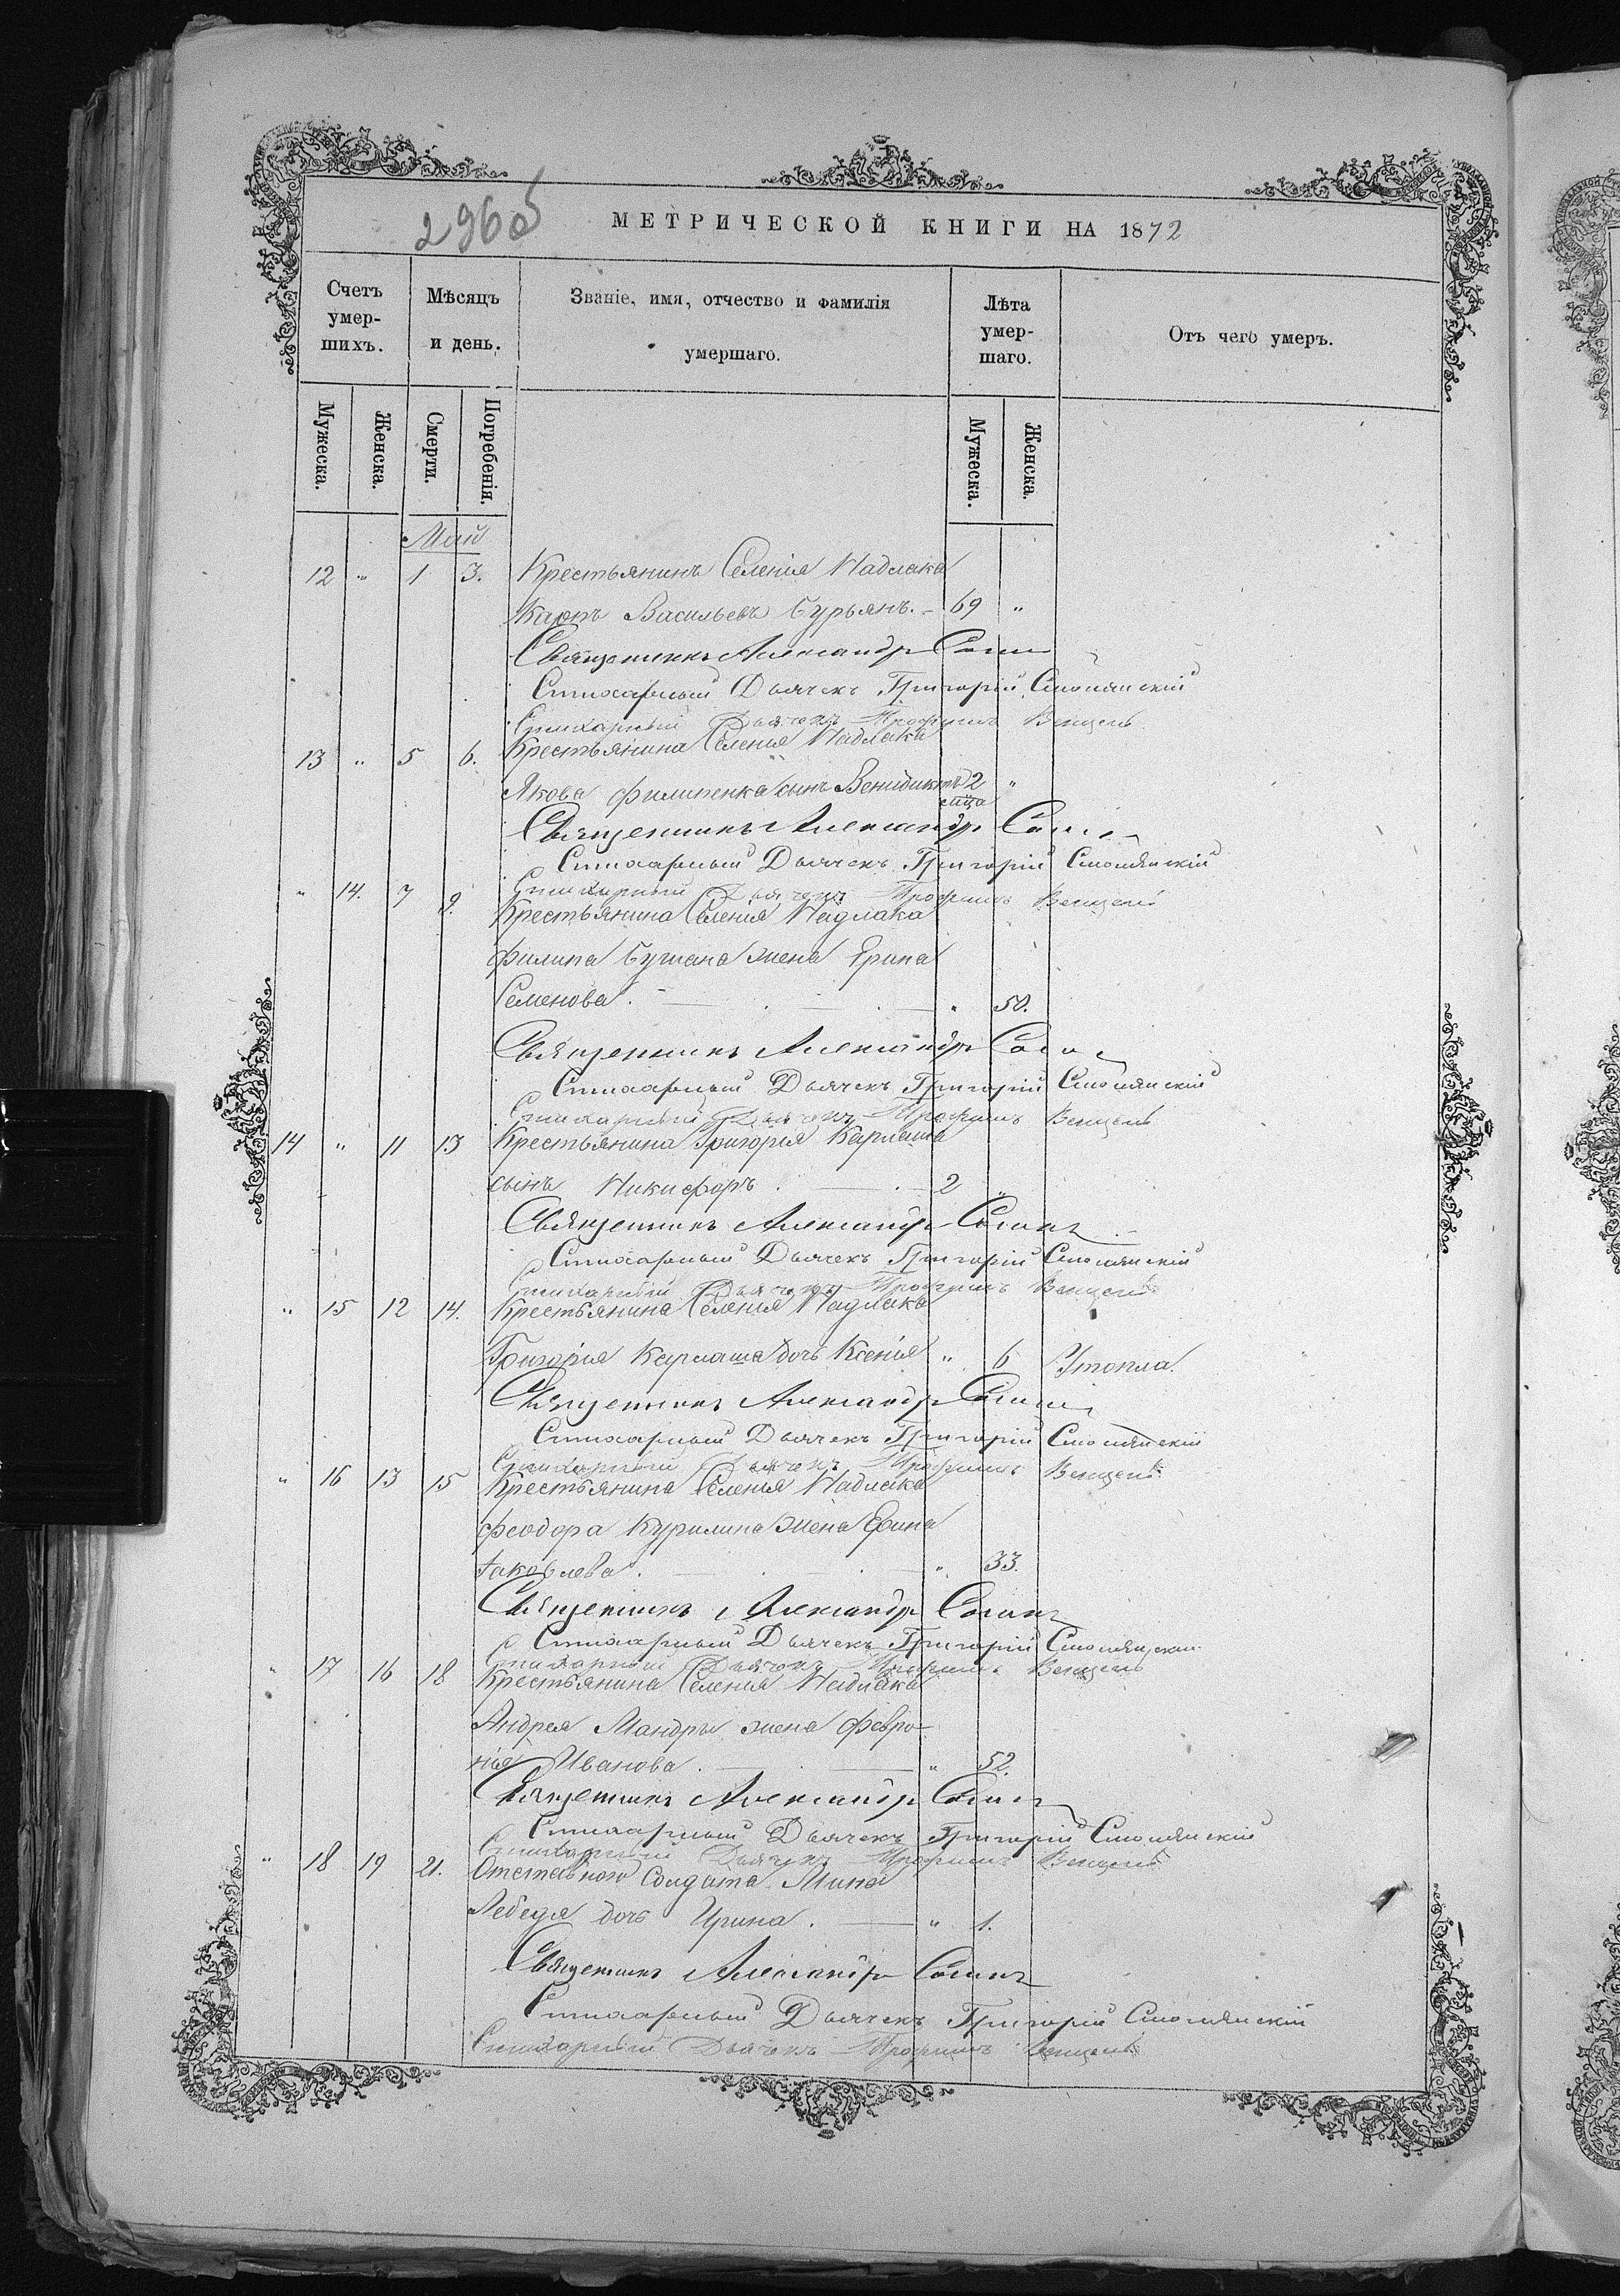 296об
МЕТРИЧЕСКОЙ КНИГИ НА 1872
Счетъ умер-шихъ. Мѣсяцъ и день. Званіе, имя, отчество и фамилія умершаго. Лѣта умер-шаго. Отъ чего умеръ.
Мужеска. Женска. Смерти. Погребенія. Мужеска. Женска.
Май
12 " 1 3. Крестьянинъ Селенія Надлака
Карпъ Васильевъ Бурьянъ. - 69 "
Священникъ Александръ
Стихарный Дьячекъ Григорій Смолянскій
Стихарный Дьячекъ Трофимъ Венцель
13 " 5 6. Крестьянина Селенія Надлака
Якова Филипенка сынъ Венидиктъ 2 "
мца
Священникъ Александръ
Стихарный Дьячекъ Григорій Смолянскій
Стихарный Дьячекъ Трофимъ Венцель
" 14. 7 9. Крестьянина Селенія Надлака
Филипа жена Ерина
Семенова. - " 50.
Священникъ Александръ
Стихарный Дьячекъ Григорій Смолянскій
Стихарный Дьячекъ Трофимъ Венцель
14 " 11 13 Крестьянина Григорія Карлаша
сынъ Никифоръ. - 2 "
Священникъ Александръ
Стихарный Дьячекъ Григорій Смолянскій
Стихарный Дьячекъ Трофимъ Венцель
" 15 12 14. Крестьянина Селенія Надлака
Григорія Карлаша дочь Ксенія " 6 Утопла.
Священникъ Александръ
Стихарный Дьячекъ Григорій Смолянскій
Стихарный Дьячекъ Трофимъ Венцель
" 16 13 15 Крестьянина Селенія Надлака
Феодора Курилина жена Ерина
Іаковлева. - " 33.
Священникъ Александръ
Стихарный Дьячекъ Григорій Смолянскій
Стихарный Дьячекъ Трофимъ Венцель
" 17 16 18 Крестьянина Селенія Надлака
Андрея Мандры жена Февро-
нія Иванова. - " 52.
Священникъ Александръ
Стихарный Дьячекъ Григорій Смолянскій
Стихарный Дьячекъ Трофимъ Венцель
" 18 19 21. Отставного Солдата Мины
Лебедя дочь Ирина. - " 1.
Священникъ Александръ
Стихарный Дьячекъ Григорій Смолянскій
Стихарный Дьячекъ Трофимъ Венцель